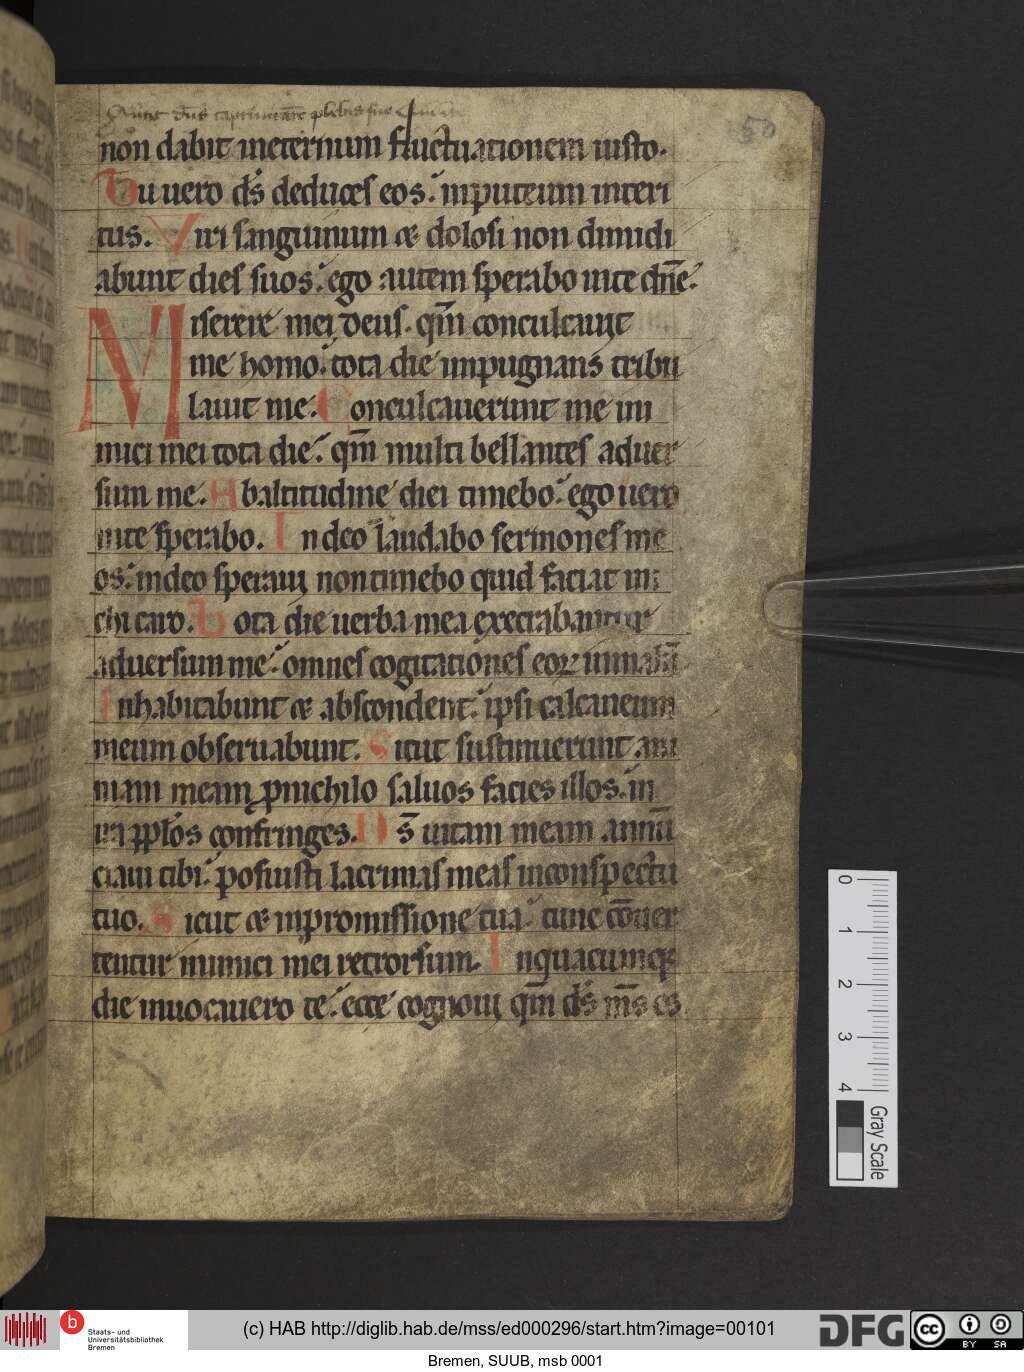 50
non dabit ineternum fluctuationem iusto.
Tu uero ds̄ deduces eos. inputeum interi
tus. Viri sanguinum & dolosi non dimidi
abunt dies suos. ego autem sperabo inte dn̄e.
Miserere mei deus. qm̄ conculcauit
me homo. tota die impugnans tribu
lauit me. Conculcauerunt me ini
mici mei tota die. qm̄ multi bellantes aduer
sum me. Abaltitudine diei timebo. ego uero
inte sperabo. Indeo laudabo sermones me
os. indeo speraui non timebo quid faciat mi
chi caro. Tota die uerba mea execrabantur
aduersum me. omnes cogitationes eoꝝ inmalū
Inhabitabunt & abscondent. ipsi calcaneum
meum obseruabunt. Sicut sustinuerunt ani
mam meam ꝓnichilo saluos facies illos. in
ira pplōs confringes. Ds̄ uitam meam annū
ciaui tibi. posuisti lacrimas meas inconspectu
tuo. Sicut & inpromissione tua. tunc cōuer
tentur inimici mei retrorsum. Inquacumqꝫ
die inuocauero te. ecce cognoui qm̄ ds̄ ms̄ es
0
1
2
3
4
Gray Scale
b Staats- und
Universitätsbibliothek
Bremen
(c) HAB http://diglib.hab.de/mss/ed000296/start.htm?image=00101
DFG
cc BY SA
Bremen, SUUB, msb 0001